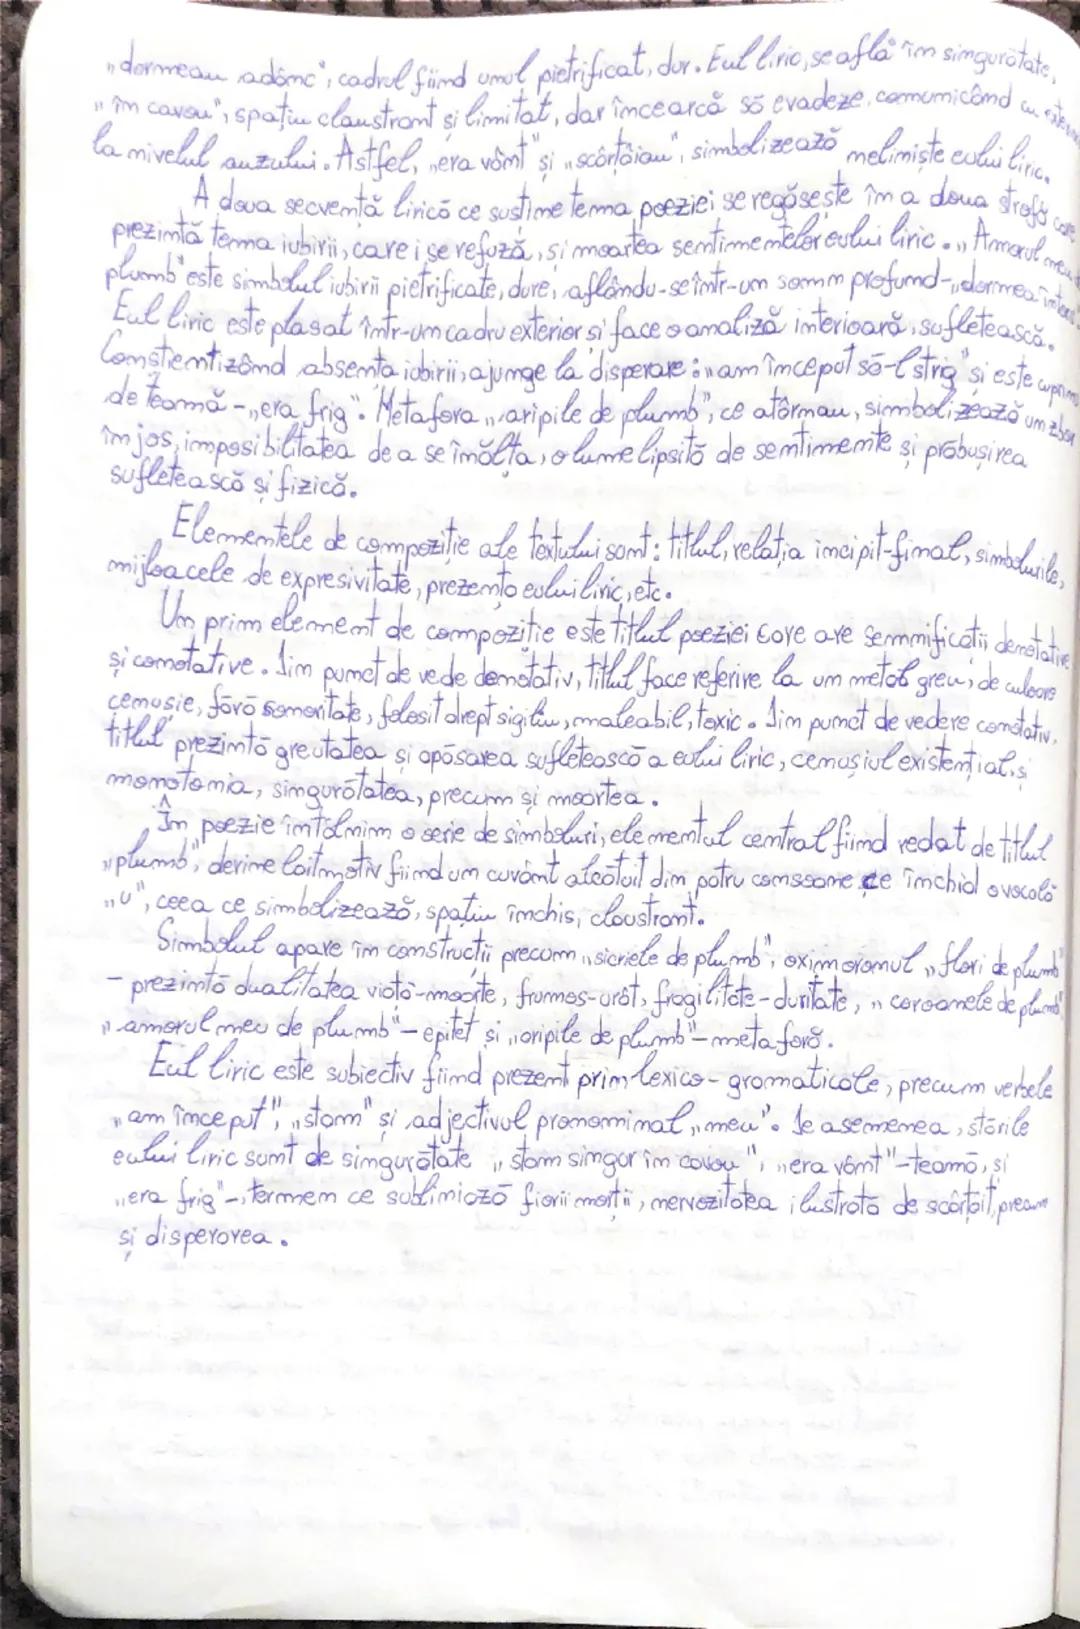 „dormeau adânc", cadrul fiind unul pietrificat, dur. Eul liric, se află în singurătate,
„în cavou", spațiu claustrant și limitat, dar încearcă să evadeze, comunicând cu
la nivelul auzului. Astfel, „era vânt" și „scârțâiau", simbolizează neliniște eului liric.
A doua secvență lirică ce susține tema poeziei se regăsește în a doua strofă care
prezintă tema iubirii, care i se refuză, și moartea sentimentelor eului liric. „Amorul meu
plumb" este simbolul iubirii pietrificate, dure, aflându-se într-un somn profund-„dormea întors
Eul liric este plasat într-un cadru exterior și face o analiză interioară, sufletească.
Conștientizând absența iubirii, ajunge la disperare: „am început să-l strig" și este cuprins
de teamă - „era frig". Metafora „aripile de plumb", ce atârnau, simbolizează un zbor
în jos, imposibilitatea de a se înălța, o lume lipsită de sentimente și prăbușirea
sufletească și fizică.
Elementele de compoziție ale textului sunt: titlul, relația incipit-final, simbolurile,
mijloacele de expresivitate, prezența eului liric, etc.
Un prim element de compoziție este titlul poeziei care are semnificații denotative
și conotative. Din punct de vede denotativ, titlul face referire la un metal greu, de culoare
cenușie, fără sonoritate, folosit drept sigiliu, maleabil, toxic. Din punct de vedere conotativ,
titlul prezintă greutatea și apăsarea sufletească a eului liric, cenușiul existențial, și
monotonia, singurătatea, precum și moartea.
În poezie întâlnim o serie de simboluri, elementul central fiind redat de titlul
„plumb", devine laitmotiv fiind un cuvânt alcătuit din patru consoane ce închid o vocală
„u", ceea ce simbolizează, spațiu închis, claustrant.
Simbolul apare în construcții precum „sicriele de plumb", oximoronul „flori de plumb"
- prezintă dualitatea viață-moarte, frumos-urât, fragilitate-duritate, „coroanele de plumb"
„amorul meu de plumb" - epitet și „aripile de plumb" - metaforă.
Eul liric este subiectiv fiind prezent prin lexico-gramaticale, precum verbele
„am început", „stam" și adjectivul pronominal „meu". De asemenea, stările
eului liric sunt de singurătate „stam singur în cavou", „era vânt" - teamă, și
„era frig" -, termen ce subliniază fiorii morții, nervozitatea ilustrată de scârțâit, precum
și disperarea.